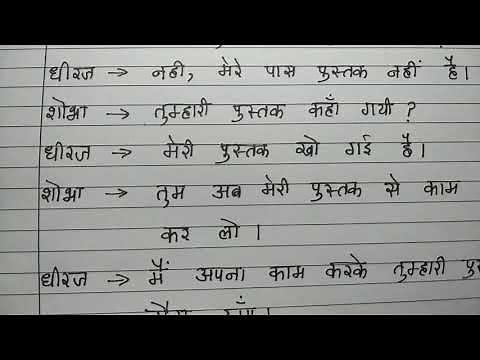 धीरज → नही, मेरे पास पुस्तक नहीं है।
शोभा → तुम्हारी पुस्तक कहाँ गयी ?
धीरज → मेरी पुस्तक खो गई है।
शोभा → तुम अब मेरी पुस्तक से काम
कर लो ।
धीरज → मैं अपना काम करके तुम्हारी